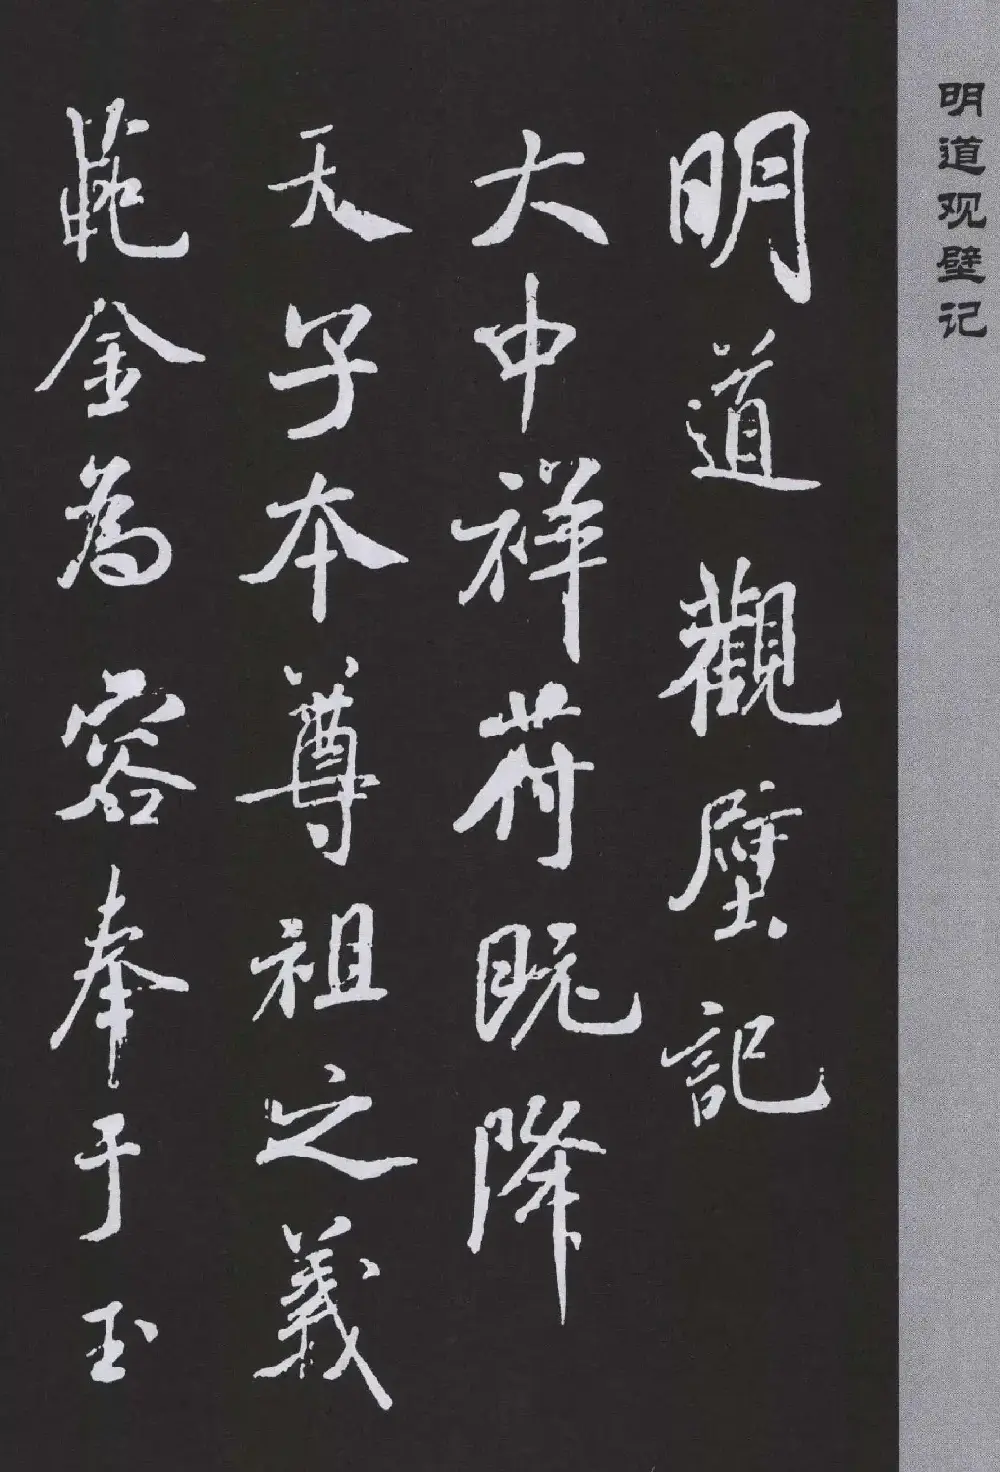 明道观壁记
明道觀壁記
大中祥苻既降
天子本尊祖之義
範金為容奉于玉